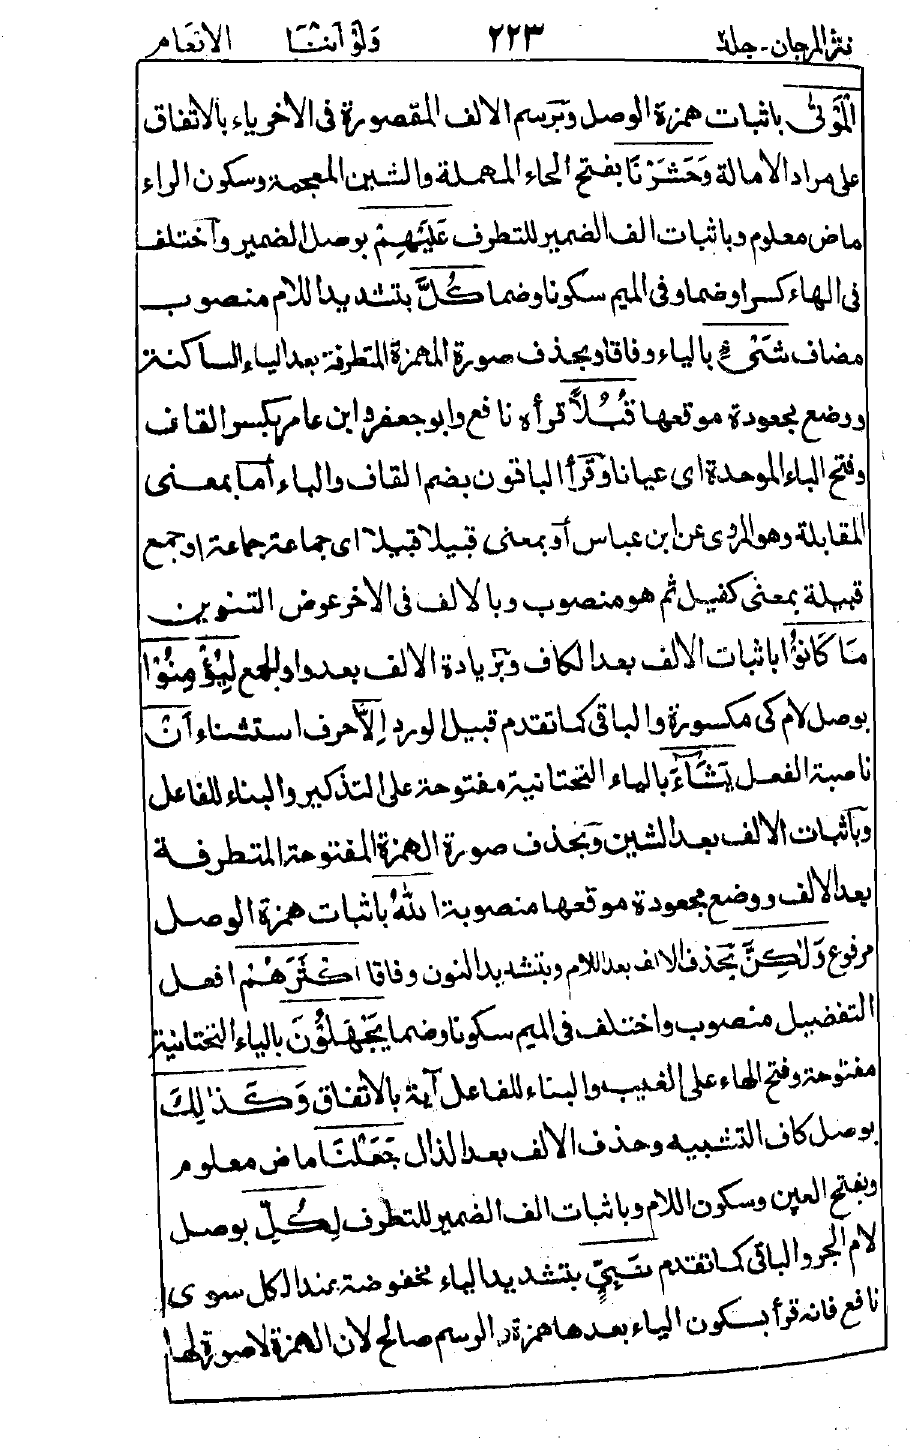 نثر المرجان - جلد ٢ ٢٢٣ ولو أننا الانعام
الْمَوْتٰى باثبات همزة الوصل وبرسم الالف المقصورة فى الاخر ياء بالاتفاق
على مراد الامالة وَحَشَرْنَا بفتح الحاء المهملة والشين المعجمة وسكون الراء
ماض معلوم وباثبات الف الضمير للتطرف عَلَيْهِمْ بوصل الضمير واختلف
فى الهاء كسرا وضما وفى الميم سكونا وضما كُلَّ بتشديد اللام منصوب
مضاف شَىْءٍ بالياء وفاقا وبحذف صورة الهمزة المتطرفة بعد الياء الساكنة
ووضع مجعودة موقعها قُبُلًا قرأه نافع وابو جعفر وابن عامر بكسر القاف
وفتح الباء الموحدة اى عيانا وقرأ الباقون بضم القاف والباء أما بمعنى
المقابلة وهو المروى عن ابن عباس أو بمعنى قبيلا قبيلا اى جماعة جماعة او جمع
قبيلة بمعنى كفيل ثم هو منصوب وبالالف فى الاخر عوض التنوين
مَا كَانُوْا باثبات الالف بعد الكاف وبزيادة الالف بعد واو الجمع لِيُؤْمِنُوْا
بوصل لام كى مكسورة والباقى كما تقدم قبيل الورد اِلَّا حرف استثناء اَنْ
ناصبة الفعل يَّشَآءَ بالياء التحتانية مفتوحة على التذكير والبناء للفاعل
وباثبات الالف بعد الشين وبحذف صورة الهمزة المفتوحة المتطرفة
بعد الالف ووضع مجعودة موقعها منصوبة اللّٰهُ باثبات همزة الوصل
مرفوع وَلٰكِنَّ بحذف الالف بعد اللام وبتشديد النون وفاقا اَكْثَرَهُمْ افعل
التفضيل منصوب واختلف فى الميم سكونا وضما يَجْهَلُوْنَ بالياء التحتانية
مفتوحة وفتح الهاء على الغيب والبناء للفاعل آية بالاتفاق وَكَذٰلِكَ
بوصل كاف التشبيه وحذف الالف بعد الذال جَعَلْنَا ماض معلوم
وبفتح العين وسكون اللام وباثبات الف الضمير للتطرف لِكُلِّ بوصل
لام الجر والباقى كما تقدم نَبِىٍّ بتشديد الياء مخفوضة عند الكل سوى
نافع فانه قرأ بسكون الياء بعدها همزة والرسم صالح لان الهمزة لا صورة لها